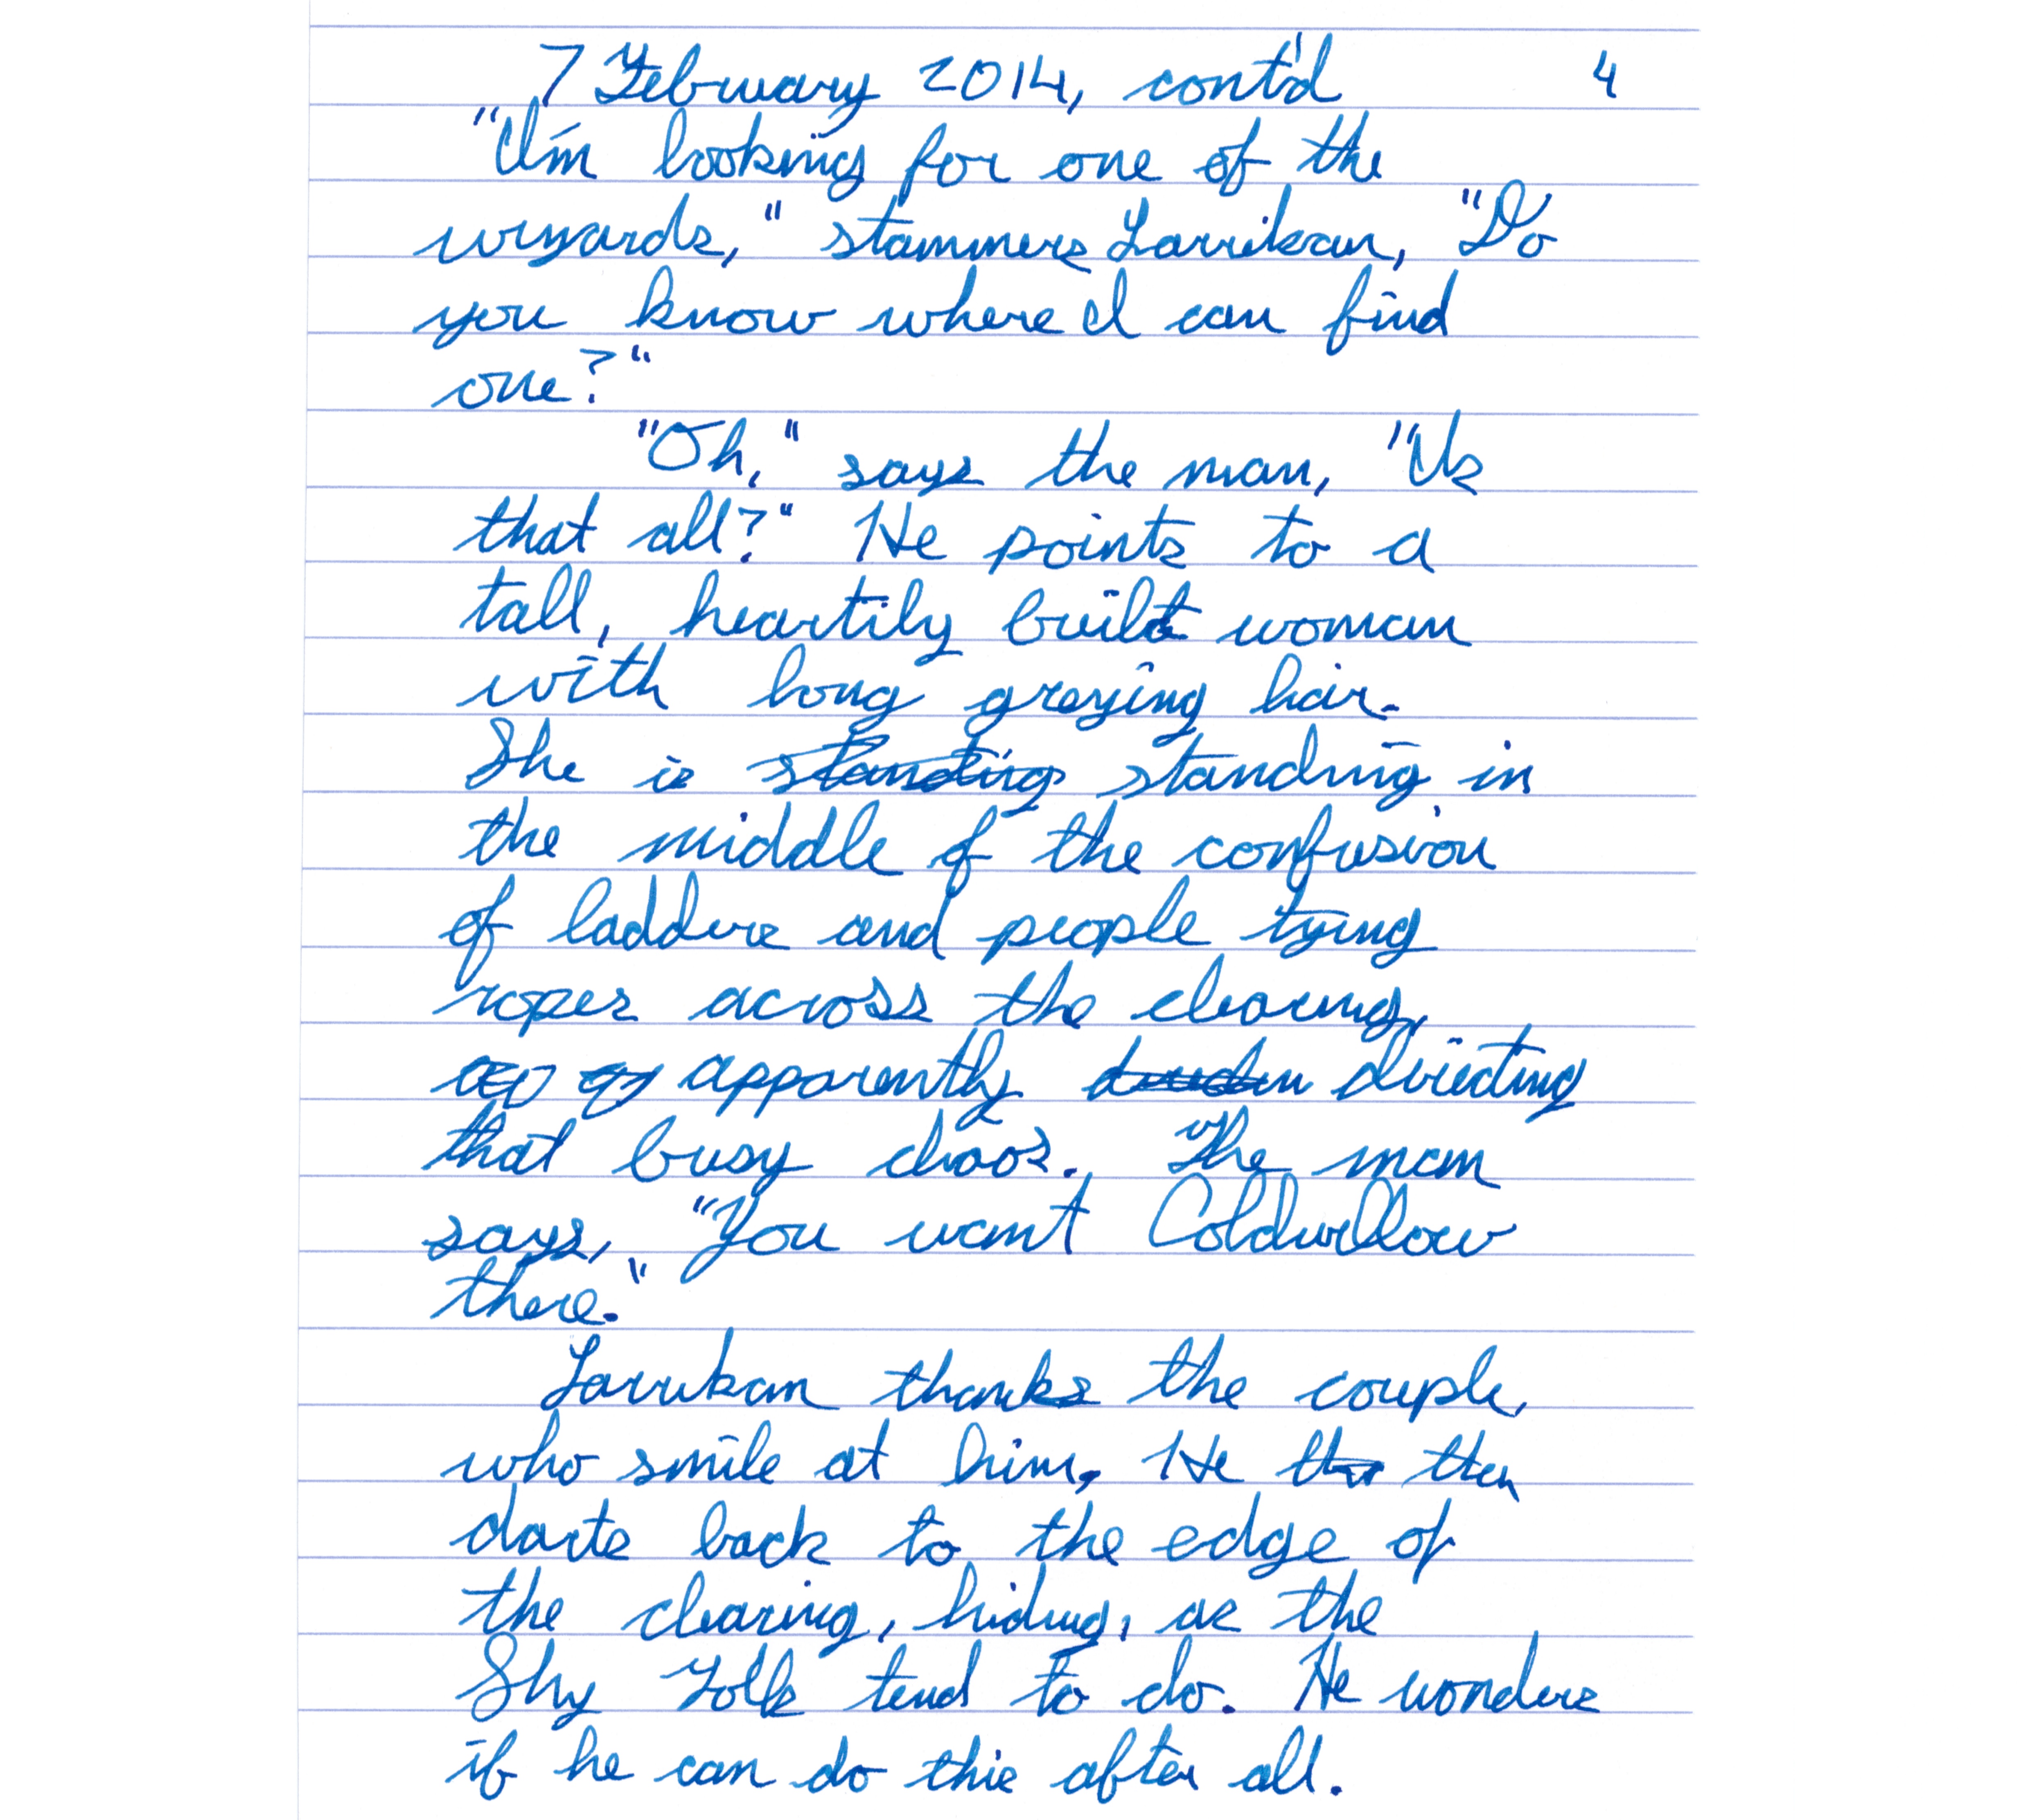 7 February 2014, cont'd 4
"I'm looking for one of the
wizards," stammers Larrikan, "Do
you know where I can find
one?"
"Oh," says the man, "Is
that all?" He points to a
tall, heartily built woman
with long graying hair.
She is standing standing in
the middle of the confusion
of ladders and people tying
ropes across the clearing,
apparently directing
that busy chaos. The man
says, "You want Coldwillow
there."
Larrikan thanks the couple,
who smile at him. He then
darts back to the edge of
the clearing, hiding, as the
Shy Folk tend to do. He wonders
if he can do this after all.